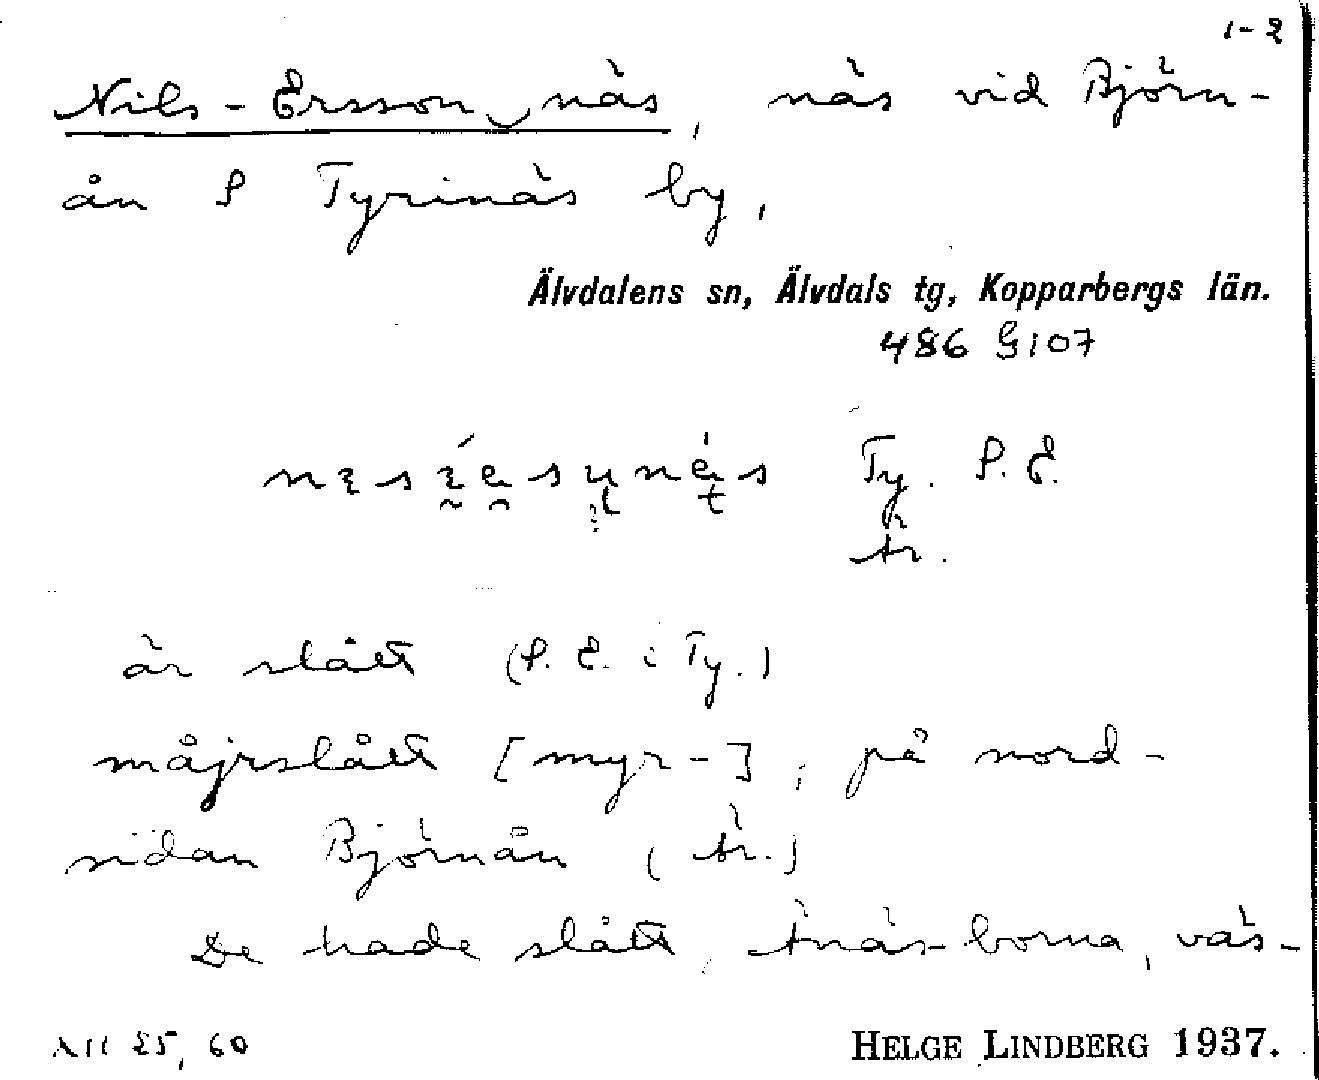 1-2
Nils-Ersson‿näs, näs vid Björn-
ån S Tyrinäs by,
Älvdalens sn, Älvdals tg, Kopparbergs län.
486 G107
Ty. S. E.
Är.
är slått (S. E. i Ty.)
måjrslått [myr-], på nord-
sidan Björnån (Är.)
De hade slått, Ånäs-borna, väs-
25, 60
HELGE LINDBERG 1937.